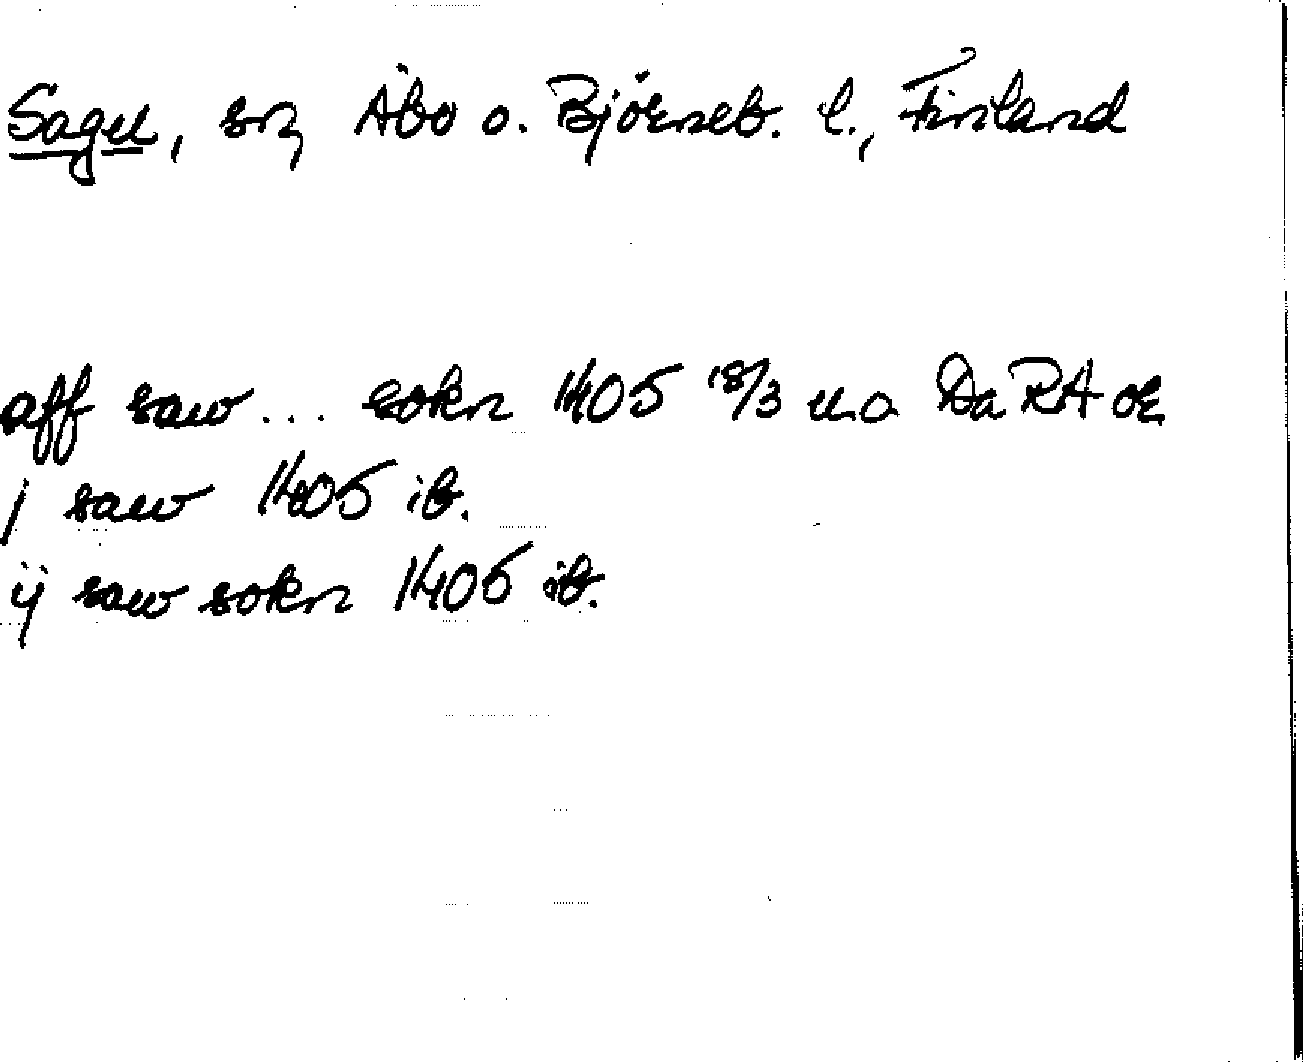 Sagu, sn, Åbo o. Björneb. l., Finland
aff saw... sokn 1405 18/3 u.o. DaRA or
j saw 1405 ib.
ij saw sokn 1405 ib.